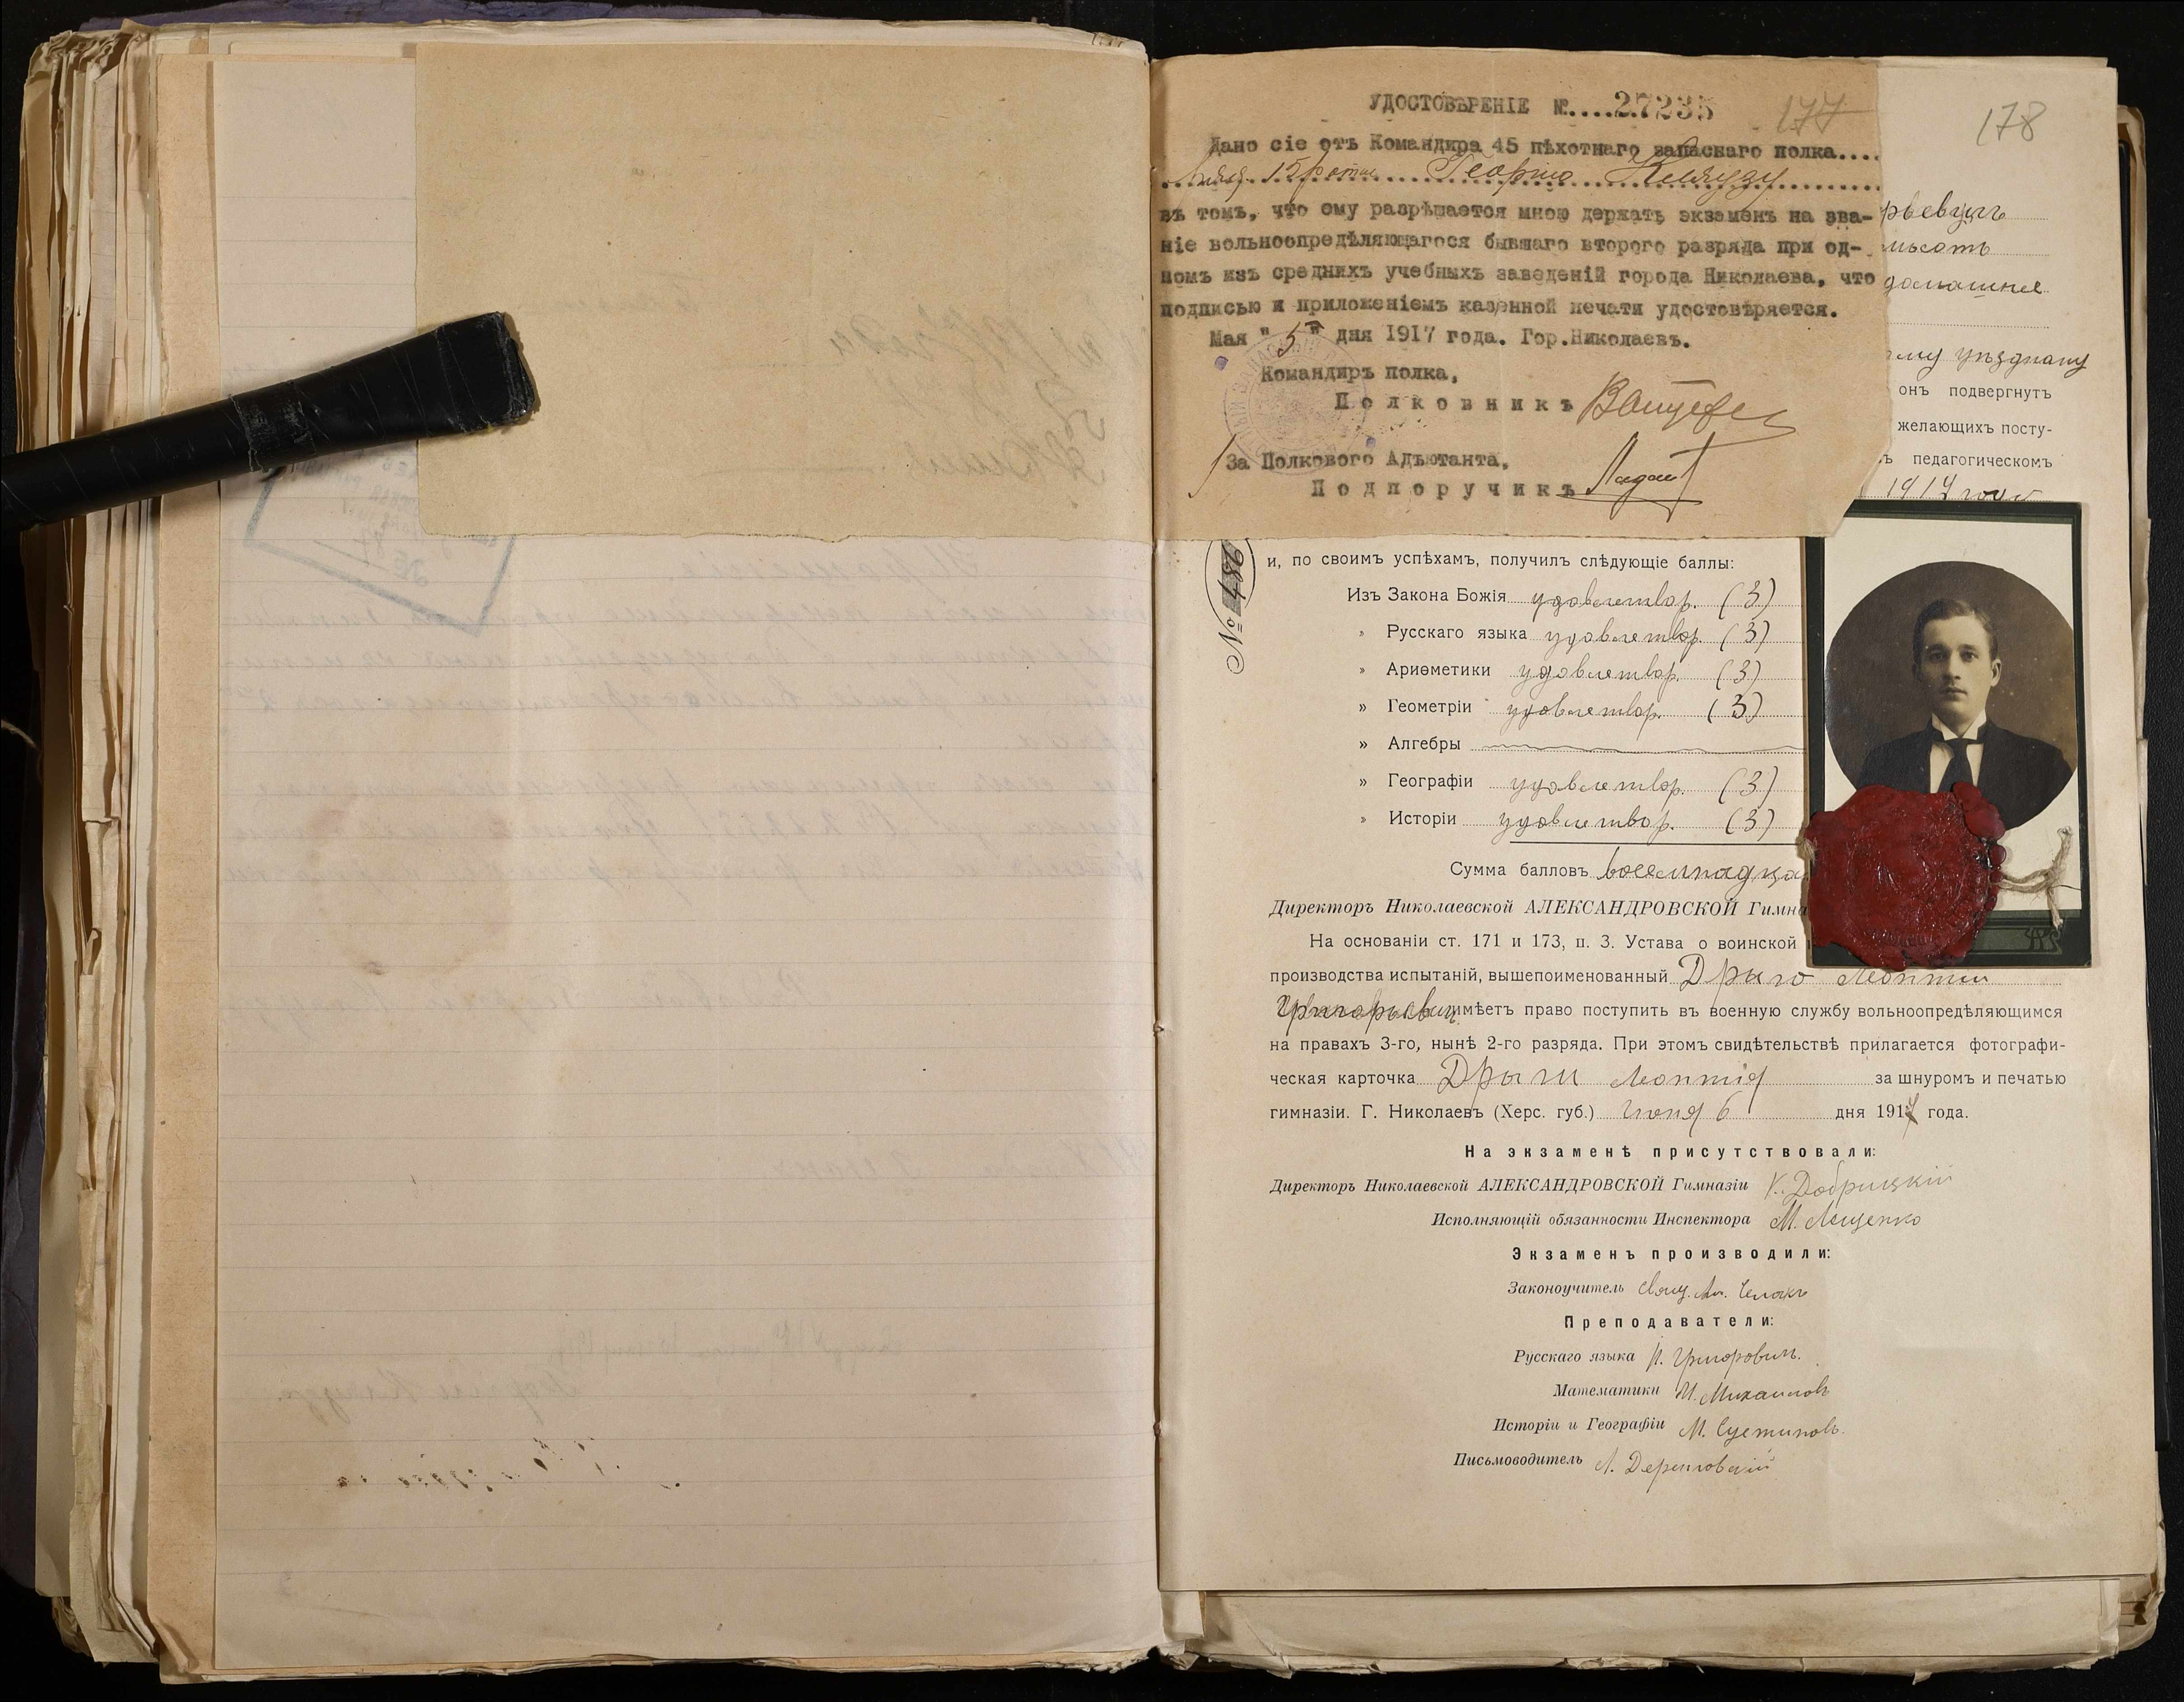 УДОСТОВѢРЕНІЕ №....27235
177
178
Дано сіе отъ Командира 45 пѣхотнаго запаснаго полка....
15 роты Георгію
въ томъ, что ему разрѣшается мною держать экзаменъ на зва-
ніе вольноопредѣляющагося бывшаго второго разряда при од-
номъ изъ среднихъ учебныхъ заведеній города Николаева, что
подписью и приложеніемъ казенной печати удостовѣряется.
Мая "5" дня 1917 года. Гор.Николаевъ.
Командиръ полка,
Полковникъ
За Полкового Адъютанта,
Подпоручикъ
рьевичъ
домашнее
ому уѣздному
онъ подвергнут
желающихъ посту-
ъ педагогическомъ
1917 года
№ 486
и, по своимъ успѣхамъ, получилъ слѣдующіе баллы:
Изъ Закона Божія удовлетвор. (3)
" Русскаго языка удовлетвор. (3)
" Ариѳметики удовлетвор. (3)
» Геометріи удовлетвор. (3)
» Алгебры
» Географіи удовлетвор. (3)
" Исторіи удовлетвор. (3)
Сумма балловъ восемнадца
Директоръ Николаевской АЛЕКСАНДРОВСКОЙ Гимна
На основаніи ст. 171 и 173, п. 3. Устава о воинской
производства испытаній, вышепоименованный Дрыго Леонтій
Григорьевичъ имѣетъ право поступить въ военную службу вольноопредѣляющимся
на правахъ 3-го, нынѣ 2-го разряда. При этомъ свидѣтельствѣ прилагается фотографи-
ческая карточка Дрыги Леонтія за шнуромъ и печатью
гимназіи. Г. Николаевъ (Херс. губ.) Іюня 6 дня 1917 года.
На экзаменѣ присутствовали:
Директоръ Николаевской АЛЕКСАНДРОВСКОЙ Гимназіи К. Добрицкій
Исполняющій обязанности Инспектора М. Лещенко
Экзаменъ производили:
Законоучитель Свящ. Ал.
Преподаватели:
Русскаго языка П. Григоровичъ.
Математики М. Михаиловъ
Исторіи и Географіи М. Сустиновъ.
Письмоводитель